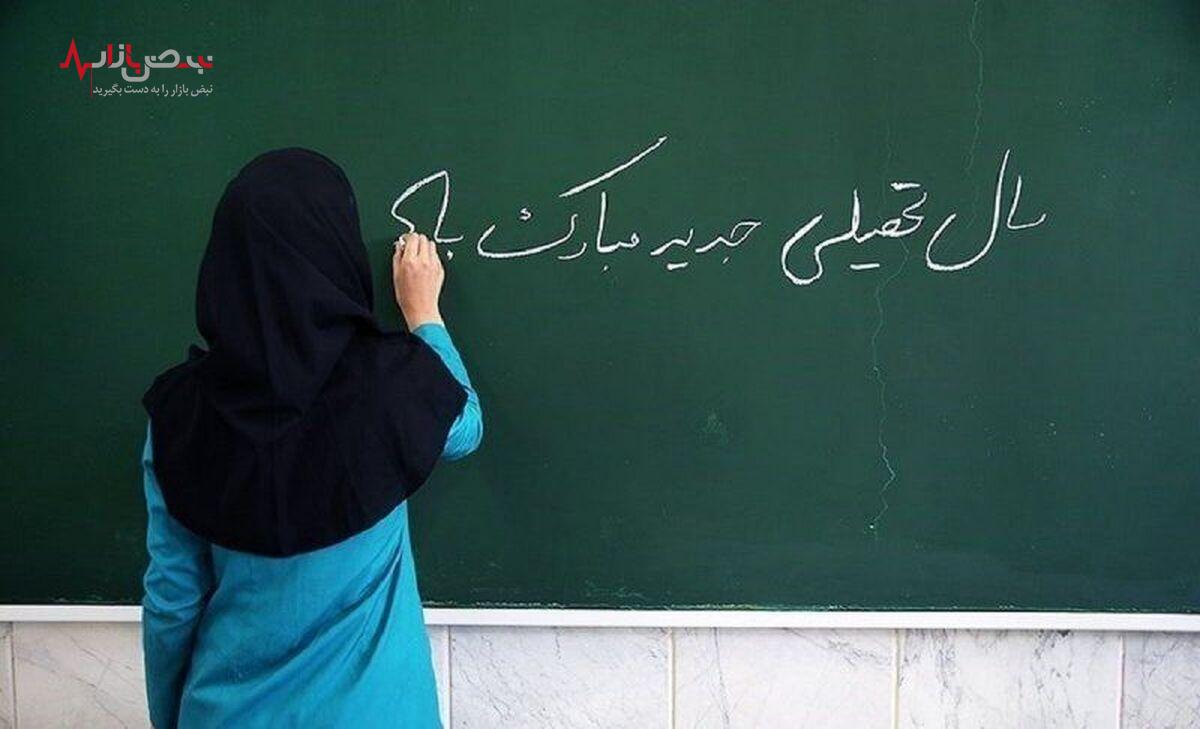 نبض بازار
نبض بازار را به دست بگیرید
سال تحصیلی جدید مبارک با